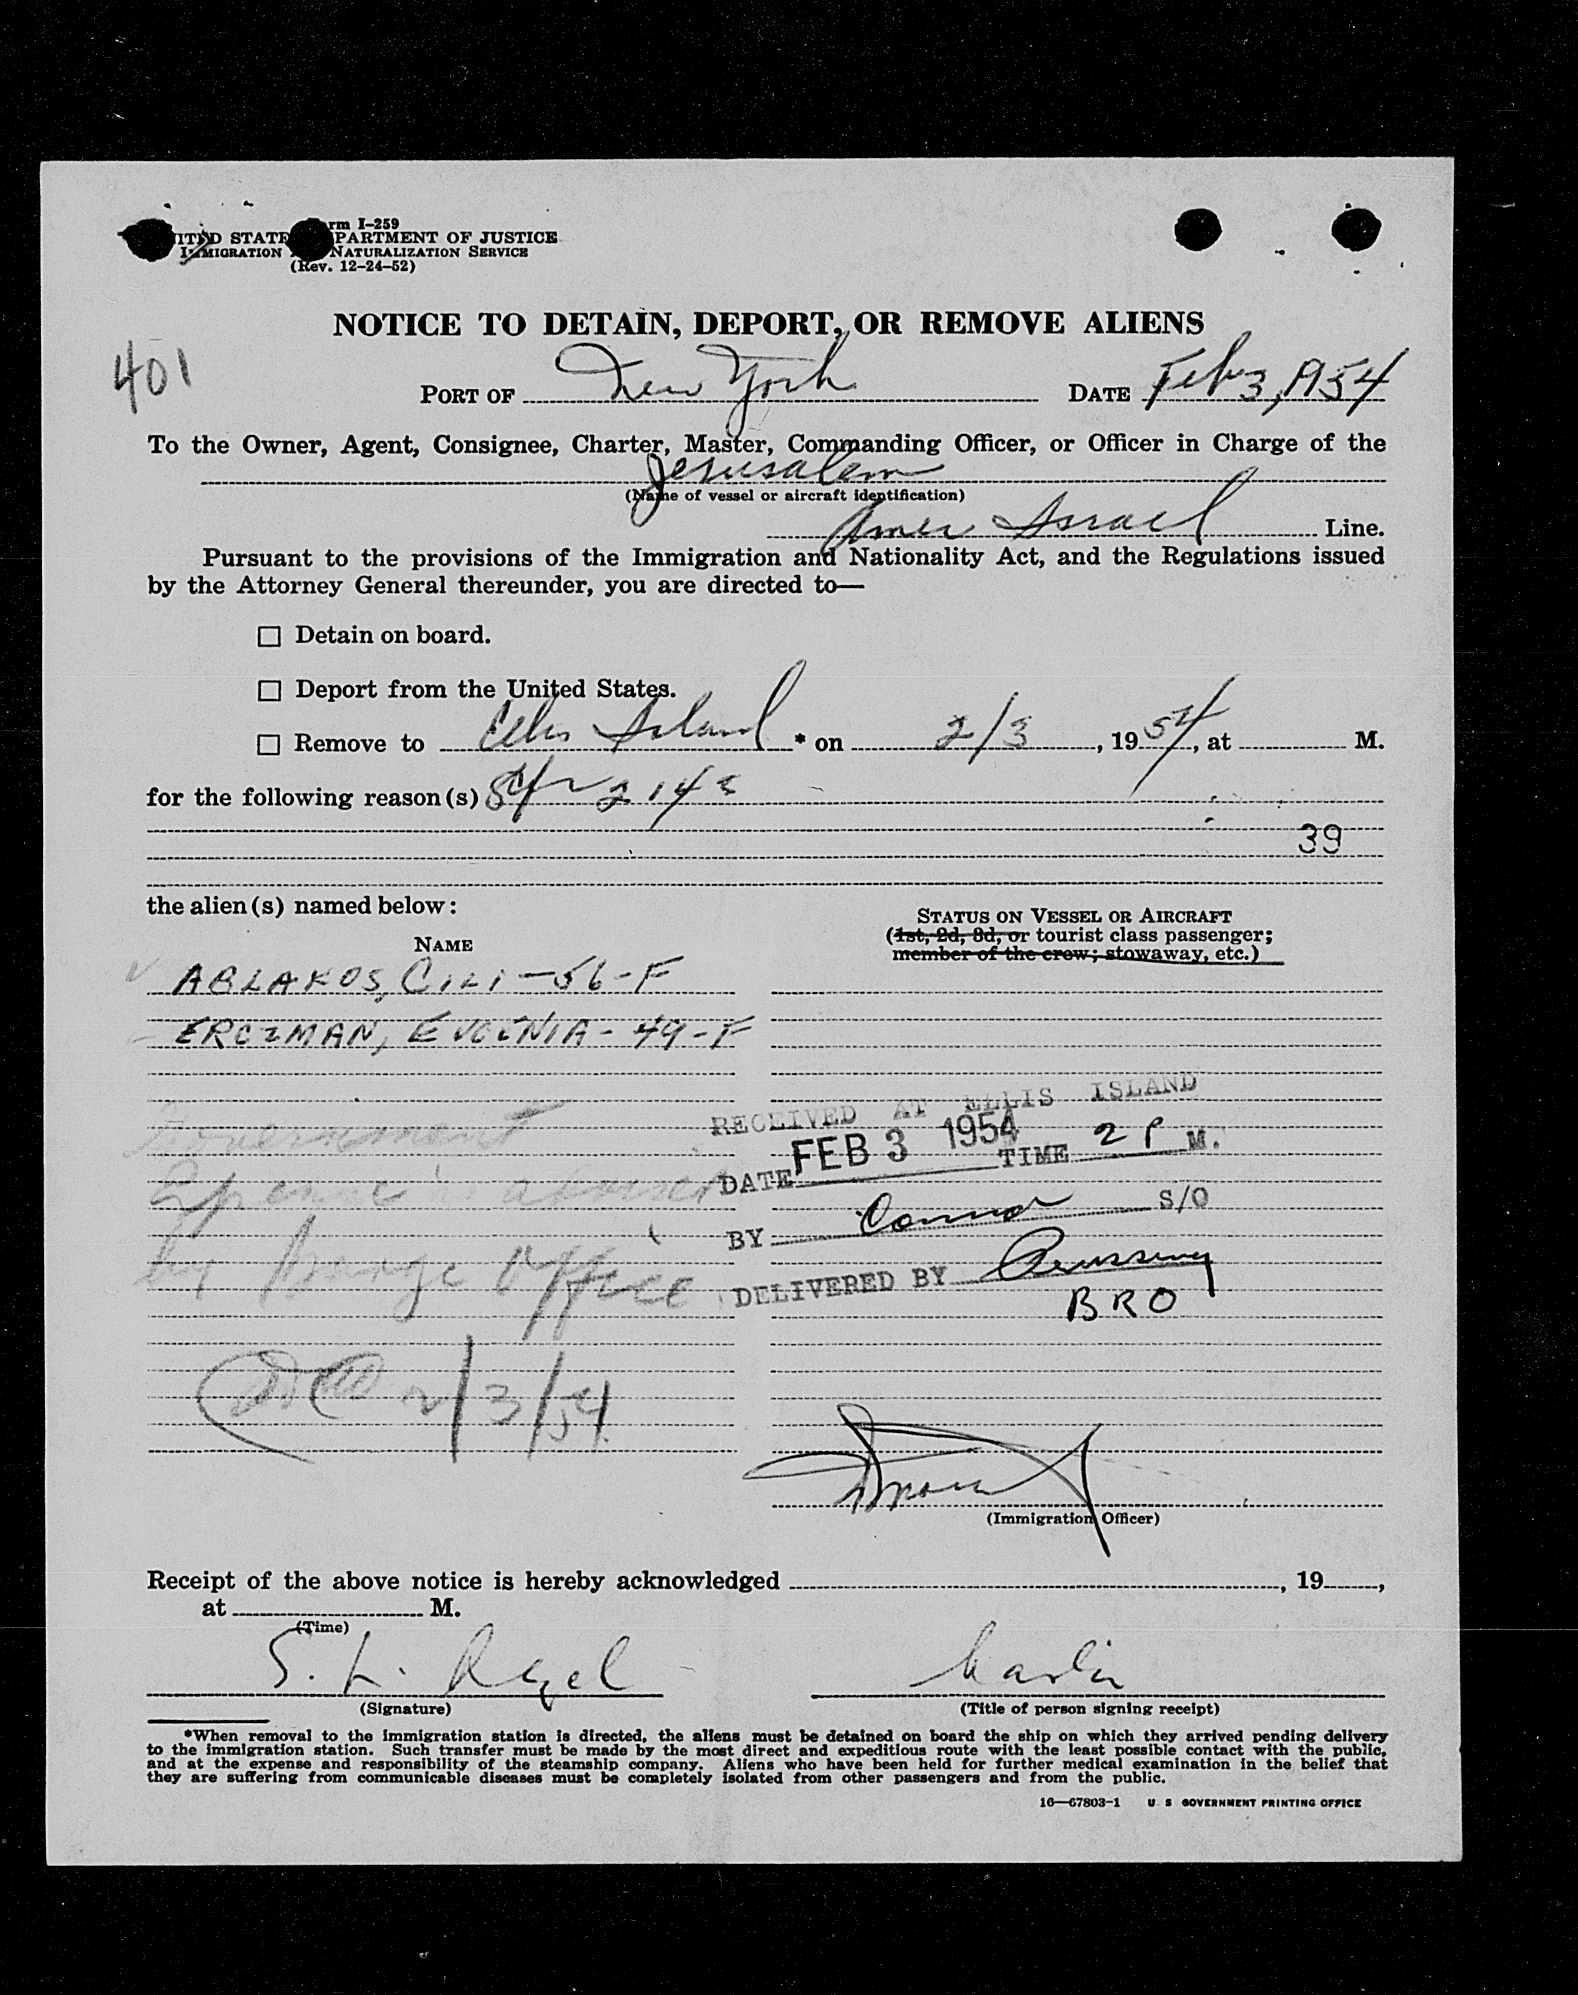 Form I-259
UNITED STATES DEPARTMENT OF JUSTICE
IMMIGRATION AND NATURALIZATION SERVICE
(Rev. 12-24-52)
NOTICE TO DETAIN, DEPORT, OR REMOVE ALIENS
401
PORT OF New York DATE Feb 3, 1954
To the Owner, Agent, Consignee, Charter, Master, Commanding Officer, or Officer in Charge of the
Jerusalem
(Name of vessel or aircraft identification)
Amer Israel Line.
Pursuant to the provisions of the Immigration and Nationality Act, and the Regulations issued
by the Attorney General thereunder, you are directed to—
☐ Detain on board.
☐ Deport from the United States.
☐ Remove to Ellis Island * on 2/3, 1954, at M.
for the following reason(s)
39
the alien(s) named below:
STATUS ON VESSEL OR AIRCRAFT
(1st, 2d, 3d, or tourist class passenger;
member of the crew; stowaway, etc.)
NAME
ABLAKOS, CILI - 56 - F
ERCZMAN, EUGENIA - 49 - F
Government
RECEIVED AT ELLIS ISLAND
DATE FEB 3 1954 TIME 2 P M.
BY Connor S/O
by Barge Office
DELIVERED BY
BRO
2/3/54
(Immigration Officer)
Receipt of the above notice is hereby acknowledged , 19 ,
at M.
(Time)
S. L.
(Signature)
(Title of person signing receipt)
*When removal to the immigration station is directed, the aliens must be detained on board the ship on which they arrived pending delivery
to the immigration station. Such transfer must be made by the most direct and expeditious route with the least possible contact with the public,
and at the expense and responsibility of the steamship company. Aliens who have been held for further medical examination in the belief that
they are suffering from communicable diseases must be completely isolated from other passengers and from the public.
16—67803-1 U. S. GOVERNMENT PRINTING OFFICE